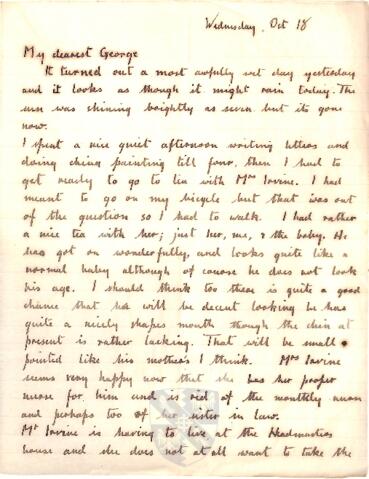 Wednesday, Oct 18
My dearest George
It turned out a most awfully wet day yesterday
and it looks as though it might rain today. The
sun was shining brightly as seven but its gone
now.
I spent a nice quiet afternoon writing letters and
doing china painting till four, then I had to
get ready to go to tea with Mrs Irvine. I had
meant to go on my bicycle but that was out
of the question so I had to walk. I had rather
a nice tea with her; just her, me, & the baby. He
has got on wonderfully, and looks quite like a
normal baby although of course he does not look
his age. I should think too there is quite a good
chance that he will be decent looking he has
quite a nicely shapes mouth though the chin at
present is rather lacking. That will be small &
pointed like his mother's I think. Mrs Irvine
seems very happy now that she has her proper
nurse for him and is rid of the monthly nurse
and perhaps too of her sister in law.
Mr Irvine is having to live at the Headmasters
house and she does not at all want to take the